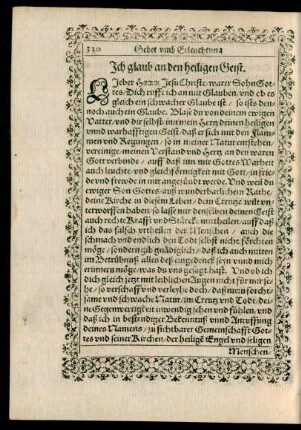 320 Gebet vnd Erleuchtung
Ich glaub an den heiligen Geist.
LIeber HErr Jesu Christe, warer Sohn Got-
tes/ Dich ruffe ich an mit Glauben, vnd ob es
gleich ein schwacher Glaube ist/ so ists den-
noch auch ein Glaube. Blase du von deinem ewigen
Vatter, vnd dir selbst, in mein Hertz deinen heiligen
vnnd warhafftigen Geist, daß er sich mit den
vnd Regungen, so in meiner Natur entstehen,
vereinige, meinen Verstand vnd Hertz an den waren
Gott verbinde/ auff daß inn mir Gottes Warheit
auch leuchte, vnd gleichförmigkeit mit Gott, in frie-
de vnd freude in mir angezündt werde. Vnd weil du
ewiger Son Gottes, auß wunderbarlichem Rathe,
deine Kirche in diesem Leben/ dem Creutze wilt vn-
terworffen haben, so lasse mir denselben deinen Geist
auch rechte Krafft vnd Stärcke mittheilen, auff daß
ich das falsch vrtheilen der Menschen/ auch die
schmach vnd endlich den Todt selbst nicht förchten
möge/ sondern gib gnädiglich/ daß ich auch mitten
im Betrübnuß alles deß eingedenck seyn vnnd mich
erinnern möge, was du vns gesagt hast. Vnd ob ich
dich gleich jetzt mit leiblichen Augen nicht für mir se-
he/ so verschaff vnd verleyhe doch, daß mein förcht-
same vnd schwache Natur, im Creutz vnd Tode, dei-
ne Gegenwertigkeit inwendig sehen vnd fühlen, vnd
daß ich in bestendiger Bekentnuß vnnd Anruffung
deines Namens, zu sichtbarer Gemeinschafft Got-
tes vnd seiner Kirchen, der heiligē Engel vnd seligen
Menschen/